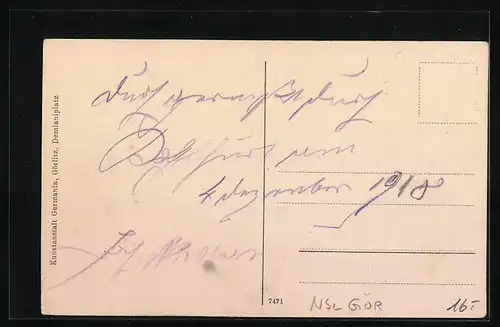 Kunstanstalt Germania, Görlitz, Demianiplatz
durch gereist durch
am
4 dezember 1918
7471
NSL GÖR
16.-